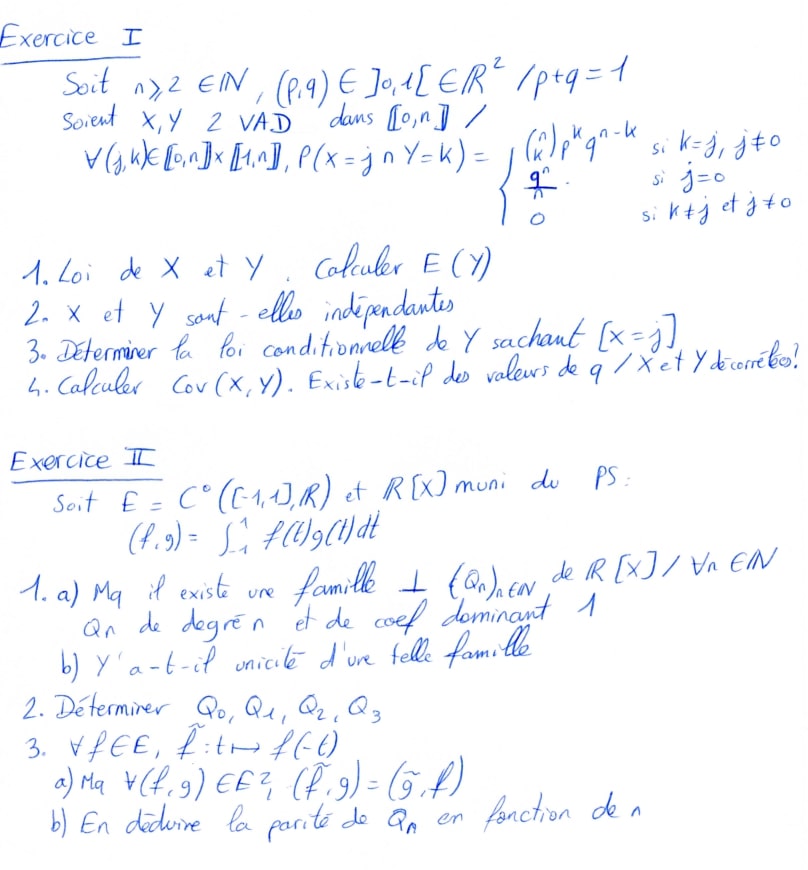 Exercice I
Soit n ⩾ 2 ∈ ℕ, (p,q) ∈ ]0,1[ ∈ ℝ² / p+q = 1
Soient X, Y 2 VAD dans ⟦0,n⟧ /
∀(j,k) ∈ ⟦0,n⟧ x ⟦1,n⟧, P(X = j ∩ Y = k) = { (n k) p^k q^{n-k} si k=j, j≠0
q^n/n . si j=0
0 si k≠j et j≠0
1. Loi de X et Y. Calculer E(Y)
2. X et Y sont-elles indépendantes
3. Déterminer la loi conditionnelle de Y sachant [X=j]
4. Calculer Cov(X, Y). Existe-t-il des valeurs de q / X et Y décorrélées?
Exercice II
Soit E = C°([-1,1],ℝ) et ℝ[X] muni du PS:
(f,g) = ∫_{-1}^{1} f(t)g(t)dt
1. a) Mq il existe une famille ⊥ {Qn}n∈ℕ de ℝ[X] / ∀n ∈ℕ
Qn de degré n et de coef dominant 1
b) Y'a-t-il unicité d'une telle famille
2. Déterminer Q0, Q1, Q2, Q3
3. ∀f∈E, f̃ : t ↦ f(-t)
a) Mq ∀(f,g) ∈E², (f̃,g) = (g̃,f)
b) En déduire la parité de Qn en fonction de n